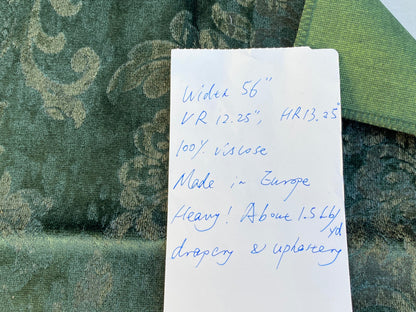 Width 56"
VR 12.25", HR 13.25"
100% viscose
Made in Europe
Heavy! About 1.5 Lb/yd
drapery & upholstery